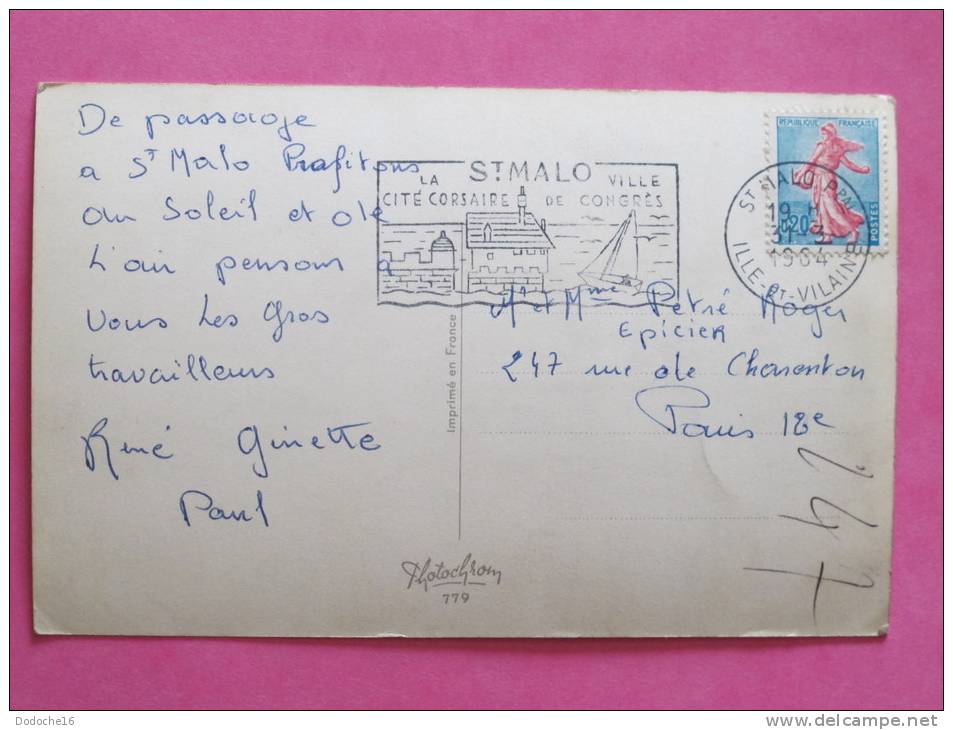 De passage
a St Malo Profitons
du Soleil et de
L'air pensons a
Vous Les Gros
travailleurs
René Ginette
Paul
LA ST MALO VILLE
CITÉ CORSAIRE DE CONGRÈS
REPUBLIQUE FRANÇAISE
0,20
POSTES
ST MALO PPAL
19 H
31-3
1964
ILLE-ET-VILAINE
Mr et Mme Petré Roger
Epicier
247 rue de Charenton
Paris 12e
247
Imprimé en France
Photochrom
779
Dodoche16
www.delcampe.net